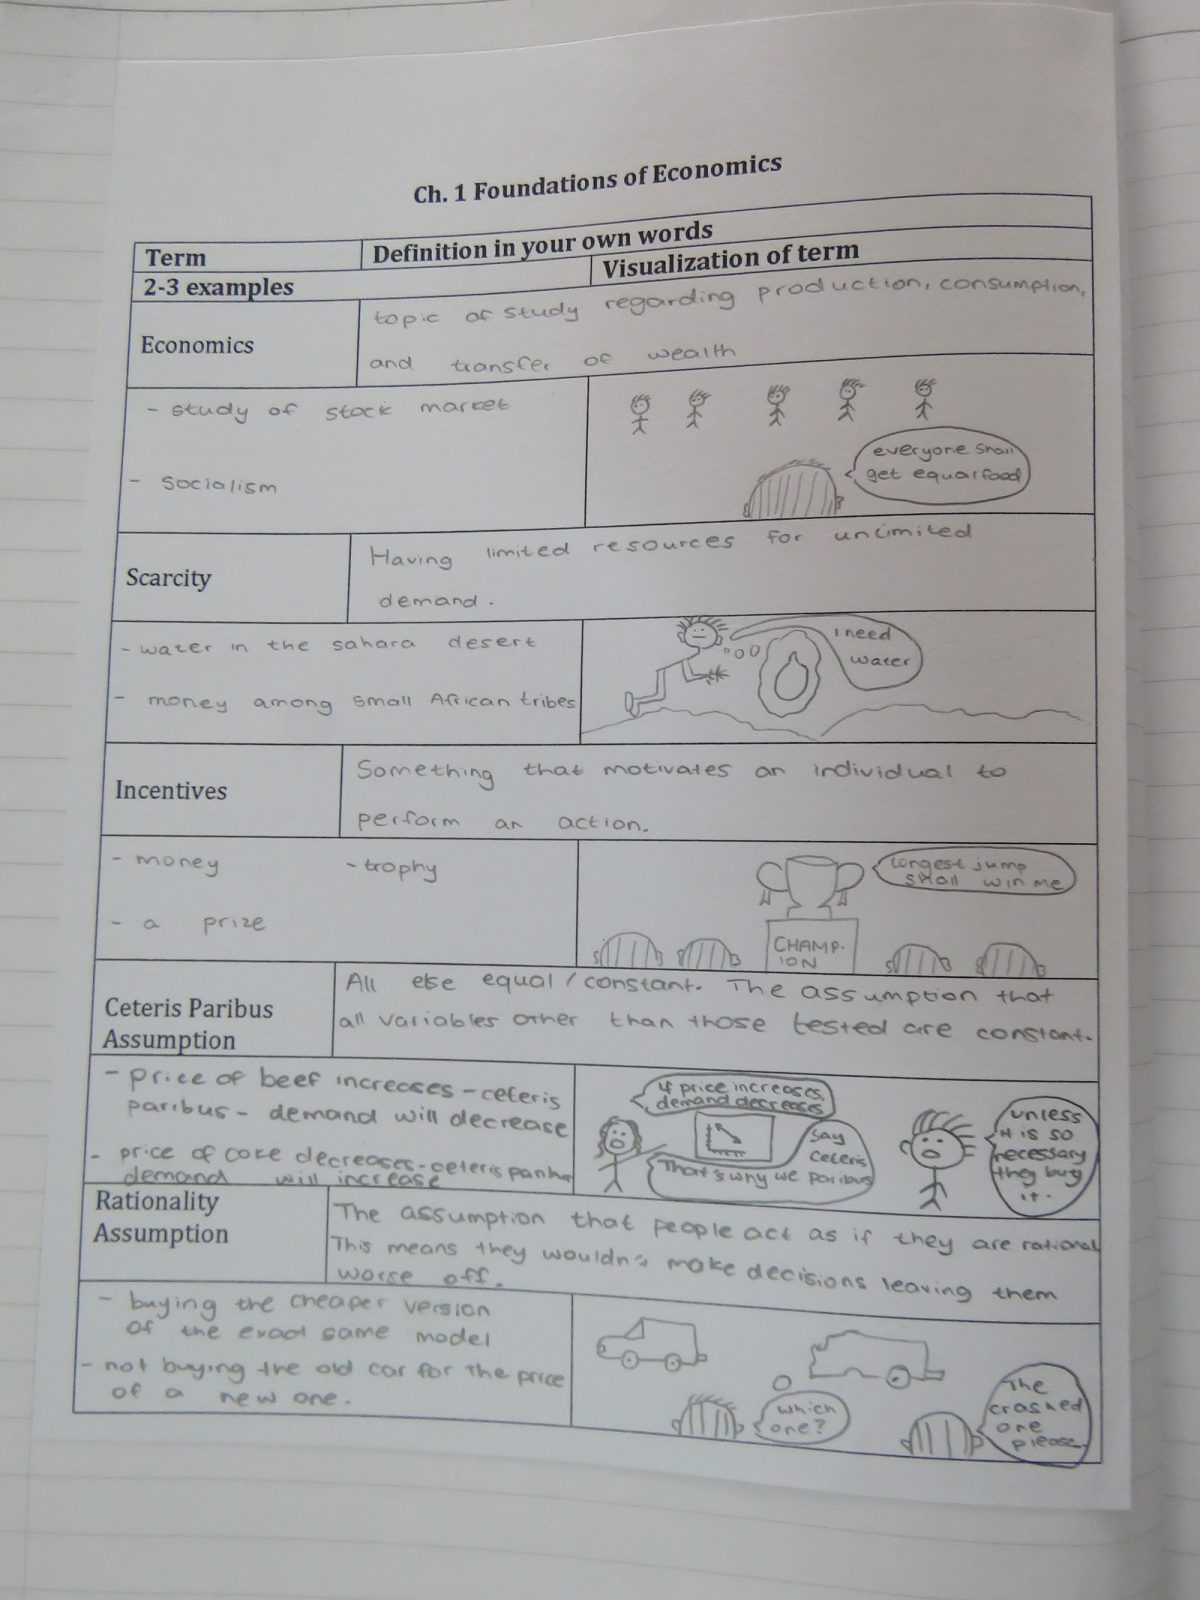 Ch. 1 Foundations of Economics
Term
Definition in your own words
2-3 examples
Visualization of term
Economics
topic of study regarding production, consumption,
and transfer of wealth
- study of stock market
- socialism
everyone shall
get equal food
Scarcity
Having limited resources for unlimited
demand.
- water in the sahara desert
- money among small African tribes
I need
water
Incentives
Something that motivates an individual to
perform an action.
- money - trophy
- a prize
longest jump
shall win me
CHAMP-
ION
Ceteris Paribus
Assumption
All else equal / constant. The assumption that
all variables other than those tested are constant.
- price of beef increases - ceteris
paribus - demand will decrease
- price of coke decreases - ceteris paribus
demand will increase
if price increases,
demand decreases
say
ceteris
That's why we paribus
unless
it is so
necessary
they buy
it.
Rationality
Assumption
The assumption that people act as if they are rational
This means they wouldn't make decisions leaving them
worse off.
- buying the cheaper version
of the exact same model
- not buying the old car for the price
of a new one.
which
one?
The
crashed
one
please